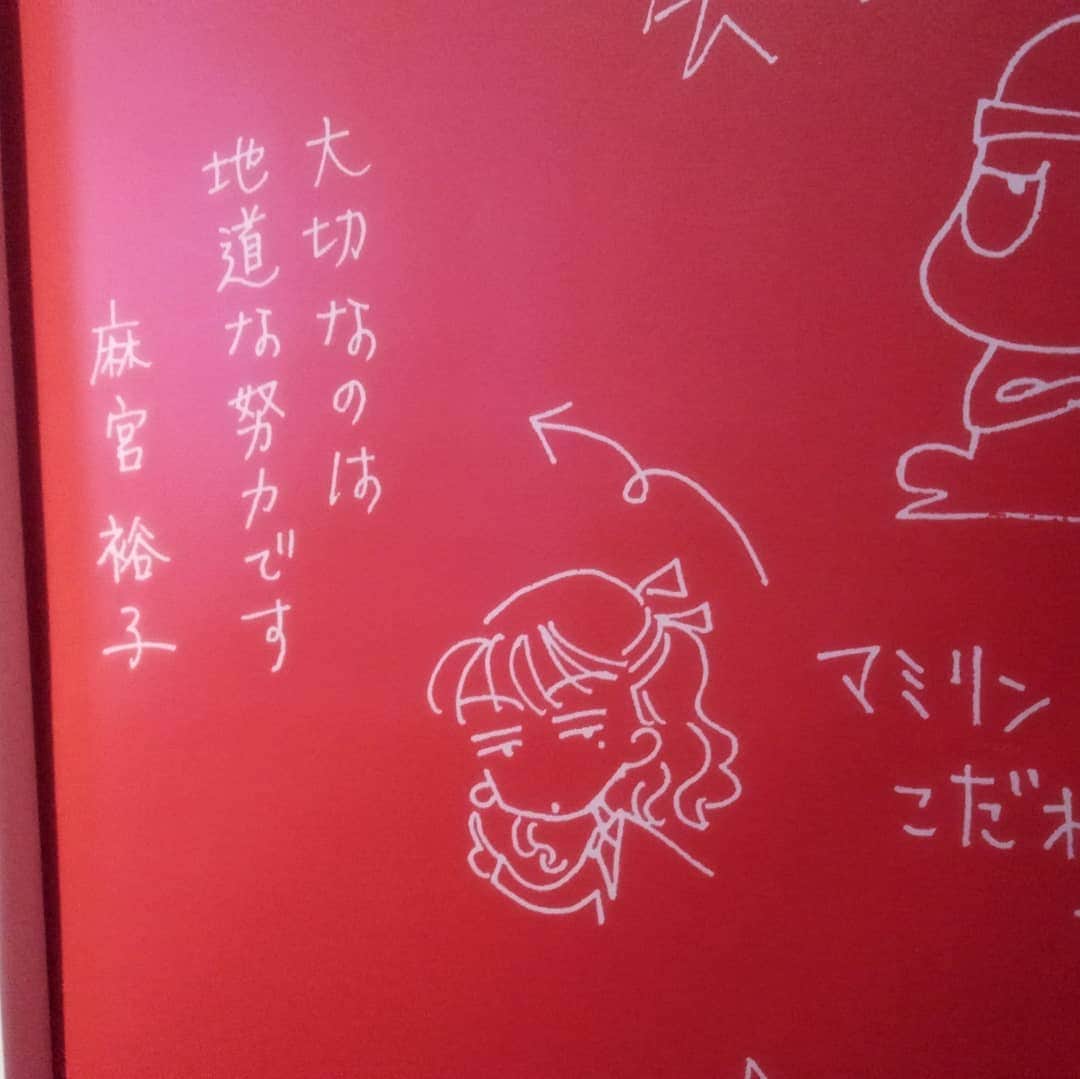 大切なのは
地道な努力です
麻宮裕子
マミリン
こだわ